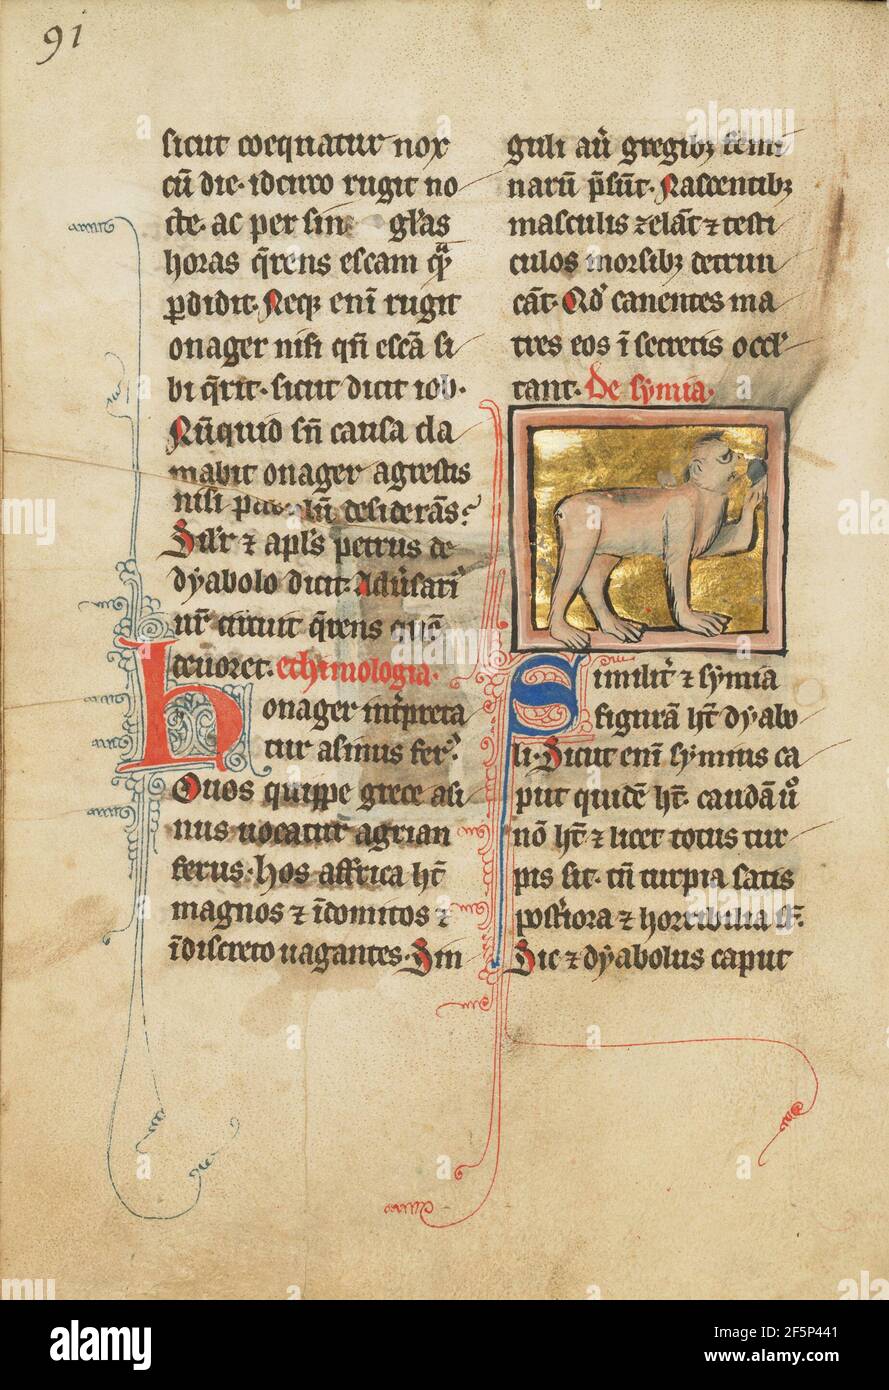 91
sicut coequatur nox
cū die. idcirco rugit no
cte. ac per sin gl'as
horas q̄rens escam qͣ
ꝑdidit. Neqꝫ enī rugit
onager nisi qn̄ escā si
bi q̄rit. sicut dicit iob.
Nūquid sn̄ causa cla
mabit onager agrestis
nisi desiderās?
Sil'r ⁊ apl's petrus de
dyabolo dicit. Adu'sari
ur' circuit q̄rens quē
deuoret. ethimologia.
honager int'preta
tur asinus fer'.
Quos quippe grece asi
nus uocatur agrian
ferus. hos affrica hꝫ̄t
magnos ⁊ īdomitos ⁊
ī discreto uagantes. Sin
guli aū gregibꝫ femi
narū p̄sūt. Nascentibꝫ
masculis zelāt ⁊ testi
culos morsibꝫ detrun
cāt. Qd' cauentes ma
tres eos ī secretis occul
tant. De symia.
Similit' ⁊ symia
figurā ht̄ dyabo
li. Sicut enī symius ca
put quidē ht̄. caudā ůo
nō ht̄ ⁊ licet totus tur
pis sit. tn̄ turpia satis
post'iora ⁊ horribilia st̄.
Sic ⁊ dyabolus caput
alamy
alamy
Image ID: 2F5P441
www.alamy.com